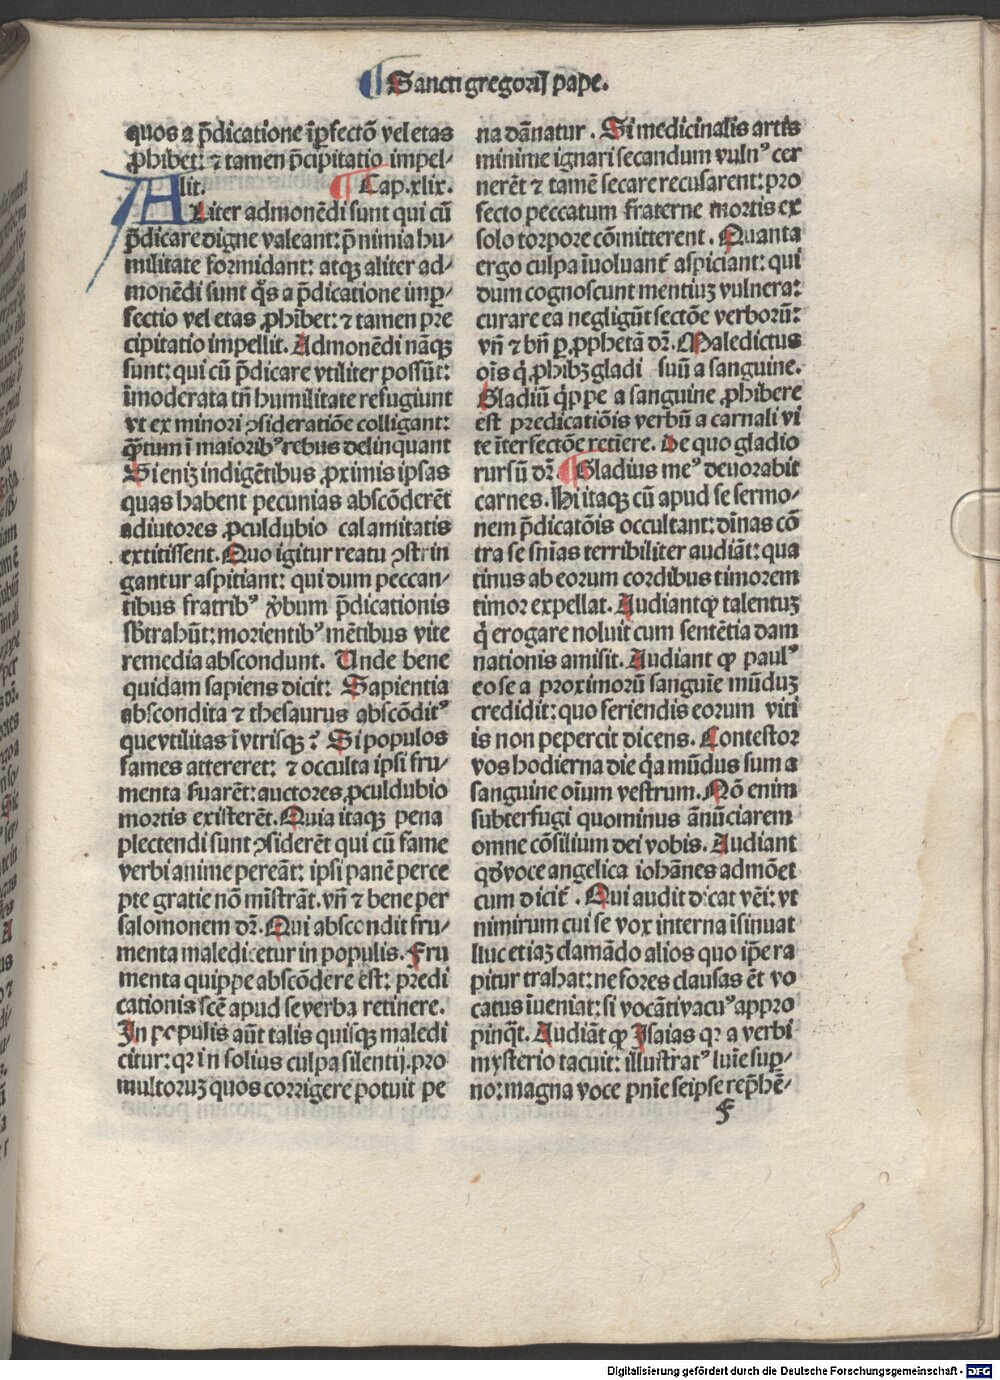 ¶ Sancti gregorij pape.
quos a p̄dicatione īꝑfectō vel etas
ꝓhibet: ⁊ tamen p̄cipitatio impel-
lit. ¶ Cap.xlix.
ALiter admonēdi sunt qui cū
p̄dicare digne valeant: p̄ nimia hu-
militate formidant: atqꝫ aliter ad-
monēdi sunt q̄s a p̄dicatione imꝑ-
fectio vel etas ꝓhibet: ⁊ tamen pre
cipitatio impellit. Admonēdi nāqꝫ
sunt: qui cū p̄dicare vtiliter possūt:
īmoderata tn̄ humilitate refugiunt
vt ex minori ꝯsideratiōe colligant:
q̄ꝫtum ī maioribꝰ rebus delinquant
Si enīꝫ indigētibus ꝓximis ipsas
quas habent pecunias abscōderēt
adiutores ꝓculdubio calamitatis
extitissent. Quo igitur reatu ꝯstrin
gantur aspitiant: qui dum peccan-
tibus fratribꝰ v̄bum p̄dicationis
sb̄trahūt: morientibꝰ mētibus vite
remedia abscondunt. Unde bene
quidam sapiens dicit: Sapientia
abscondita ⁊ thesaurus abscōditꝰ
que vtilitas ī vtrisqꝫ? Si populos
fames attereret: ⁊ occulta ipsi fru-
menta ſuarēt: auctores ꝓculdubio
mortis existerēt. Quia itaqꝫ pena
plectendi sunt ꝯsiderēt qui cū fame
verbi anime pereāt: ipsi panē perce
pte gratie nō mīstrāt. vn̄ ⁊ bene per
salomonem dr̄. Qui abscondit fru-
menta maledicetur in populis. Fru
menta quippe abscōdere est: predi
cationis scē apud se verba retinere.
In populis aūt talis quisqꝫ maledi
citur: qr in solius culpa silentij. pro
multoruꝫ quos corrigere potuit pe
na dānatur. Si medicinalis artis
minime ignari secandum vulnꝰ cer
nerēt ⁊ tamē secare recusarent: pro
fecto peccatum fraterne mortis ex
solo torpore cōmitterent. Quanta
ergo culpa īuoluant̄ aspiciant: qui
dum cognoscunt mentiuꝫ vulnera:
curare ea negligūt sectōe verborū:
vn̄ ⁊ bn̄ ꝑ ꝓphetā dr̄. Maledictus
oīs q̇ ꝓhibꝫ gladi suū a sanguine.
Gladiū q̇ppe a sanguine ꝓhibere
est predicatiōis verbū a carnali vi
te īterfectōe retīere. De quo gladio
rursū dr̄. ¶ Gladius meꝰ deuorabit
carnes. Hi itaqꝫ cū apud se sermo-
nem p̄dicatōis occultant: dīnas cō
tra se sn̄ias terribiliter audiāt: qua
tinus ab eorum cordibus timorem
timor expellat. Audiant ꝙ talentuꝫ
q̇ erogare noluit cum sentētia dam
nationis amisit. Audiant ꝙ paulꝰ
eo se a proximorū sanguīe mūduꝫ
credidit: quo feriendis eorum viti
is non pepercit dicens. Contestor
vos hodierna die q̇a mūdus sum a
sanguine oīum vestrum. Nō enim
subterfugi quominus ānūciarem
omne cōsilium dei vobis. Audiant
qd̛ voce angelica iohānes admōet
cum dicit̄. Qui audit dicat vēi: vt
nimirum cui se vox interna īsinuat
lluc etiaꝫ clamādo alios quo ip̄e ra
pitur trahat: ne fores clausas ēt vo
catus īueniat: si vocāti vacuꝰ appro
pinq̄t. Audiāt ꝙ Isaias qr a verbi
mysterio tacuit: illustratꝰ luīe suꝑ-
no: magna voce pnīe seipse rep̄hē-
F
Digitalisierung gefördert durch die Deutsche Forschungsgemeinschaft - DFG